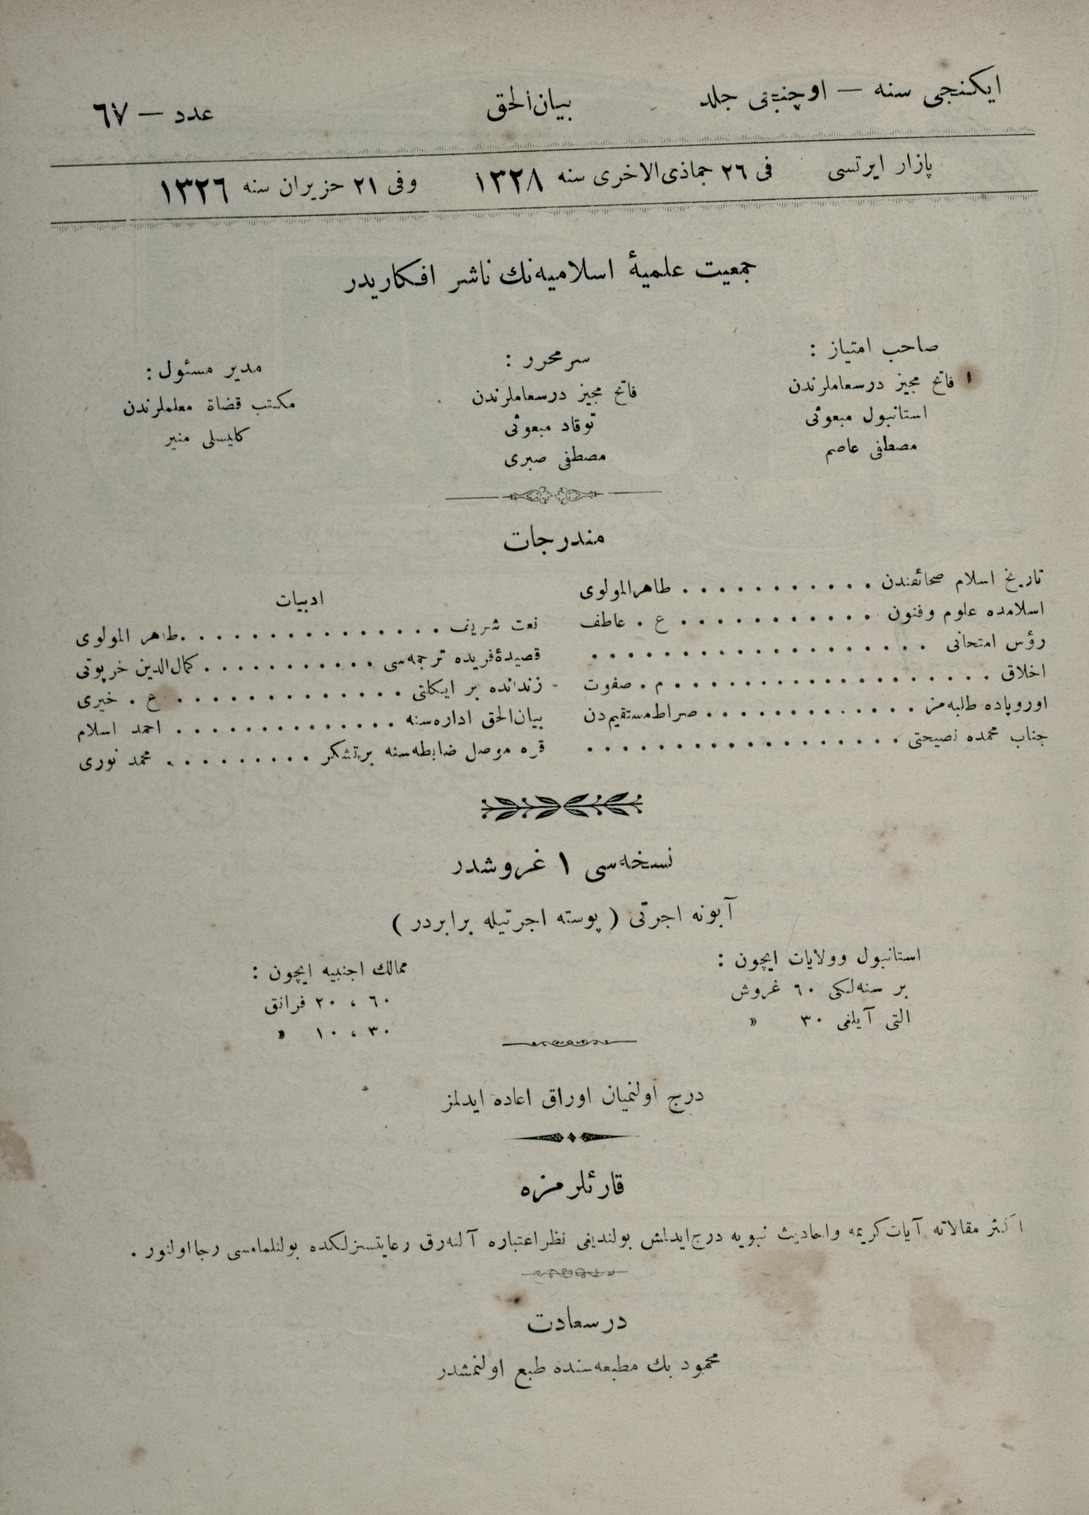 ايكنجی سنه — اوچنجی جلد
بيان‌الحق
عدد — ٦٧
پازار ايرتسی
فی ٢٦ جماذی‌الاخری سنه ١٣٢٨
وفی ٢١ حزيران سنه ١٣٢٦
جمعيت علميهٔ اسلاميه‌نك ناشر افكاريدر
صاحب امتياز :
فاتح مجيز درسعاملرندن
استانبول مبعوثی
مصطفی عاصم
سرمحرر :
فاتح مجيز درسعاملرندن
توقاد مبعوثی
مصطفی صبری
مدير مسئول :
مكتب قضاة معلملرندن
كليسلی منير
مندرجات
تاريخ اسلام صحائفندن . . . . . . . . . . . طاهرالمولوی
اسلامده علوم وفنون . . . . . . . . . . . ع . عاطف
رؤس امتحانی . . . . . . . . . . . . . . . . . .
اخلاق . . . . . . . . . . . . . . . . . . م . صفوت
اوروپاده طلبه‌مز . . . . . . . . . . . . . صراط‌مستقيم‌دن
جناب محمده نصيحتی . . . . . . . . . . . . . . . . . .
ادبيات
نعت شريف . . . . . . . . . . . . . . . طاهر المولوی
قصيدهٔ فريده ترجمه‌سی . . . . . . . . . . . كمال‌الدين خرپوتی
زندانده بر ايكلتی . . . . . . . . . . . . . ع . خيری
بيان‌الحق اداره‌سنه . . . . . . . . . . . . . احمد اسلام
قره موصل ضابطه‌سنه برتشكر . . . . . . . . . محمد نوری
نسخه‌سی ١ غروشدر
آبونه اجرتی ( پوسته اجرتيله برابردر )
استانبول وولايات ايچون :
بر سنه‌لكی ٦٠ غروش
التی آيلغی ٣٠ »
ممالك اجنبيه ايچون :
٦٠ ، ٢٠ فرانق
٣٠ ، ١٠ »
درج اولنميان اوراق اعاده ايدلمز
قارئلرمزه
اكثر مقالاته آيات كريمه واحاديث نبويه درج‌ايدلمش بولنديغی نظراعتباره آلنه‌رق رعايتسزلكده بولنلمامسی رجااولنور .
درسعادت
محمود بك مطبعه‌سنده طبع اولنمشدر